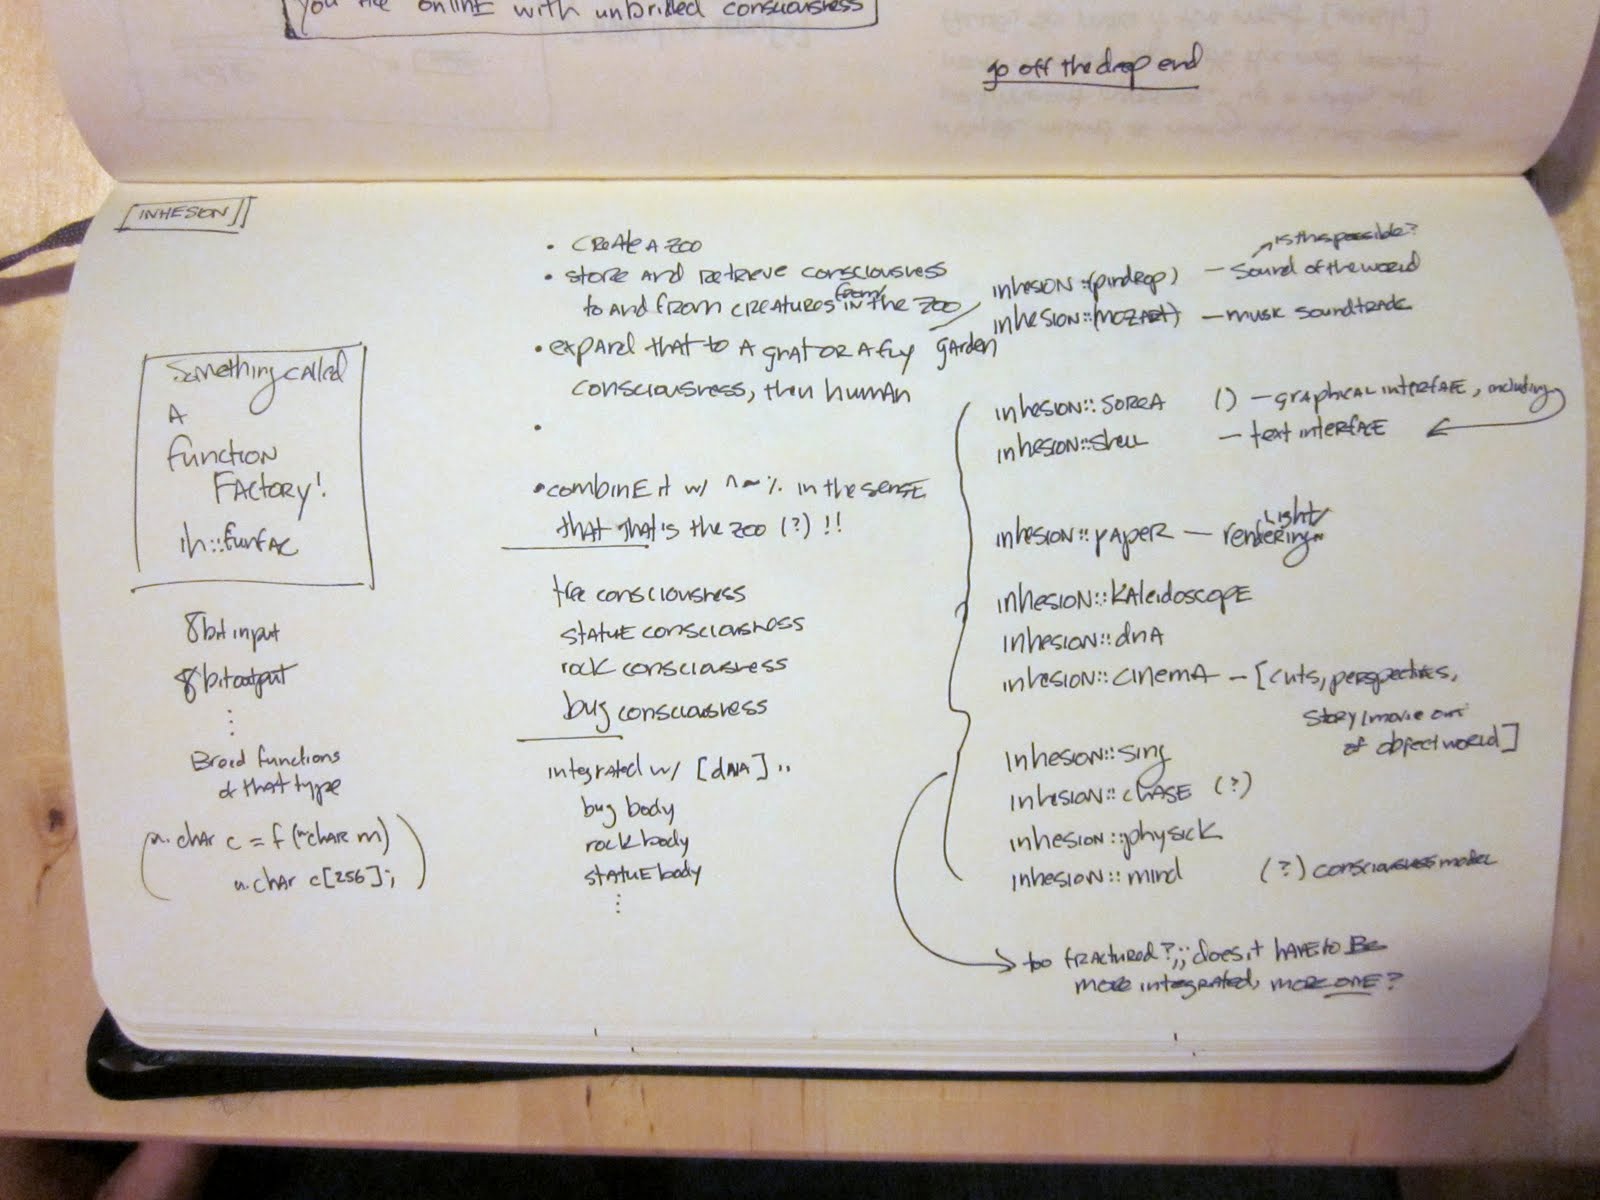 you are online with unbridled consciousness
go off the drop end
[INHESION]]
Something called
A
function
FACTORY!
ih::funfac
8bit input
8bit output
⋮
Broad functions
of that type
(u.char c = f(u.char m)
u.char c[256];)
• CREATE A ZOO
• store and retrieve consciousness
to and from creatures from in the zoo/
garden
• expand that to A gnat OR A fly
consciousness, then human
•
• combine it w/ ^~% in the sense
that that's the zoo (?) !!
tree consciousness
statue consciousness
rock consciousness
bug consciousness
integrated w/ [dNA] ..
bug body
rock body
statue body
⋮
is this possible?
inhesion::(pindrop) — sound of the world
inhesion::(mozart) — music soundtrack
inhesion::sorra () — graphical interface, including
inhesion::shell — text interface
inhesion::paper — light rendering
inhesion::kaleidoscope
inhesion::dnA
inhesion::cinema — [cuts, perspectives,
story/movie out
of object world]
inhesion::sing
inhesion::chase (?)
inhesion::physick
inhesion::mind (?) consciousness model
too fractured?;; does it have to be
more integrated, more one?